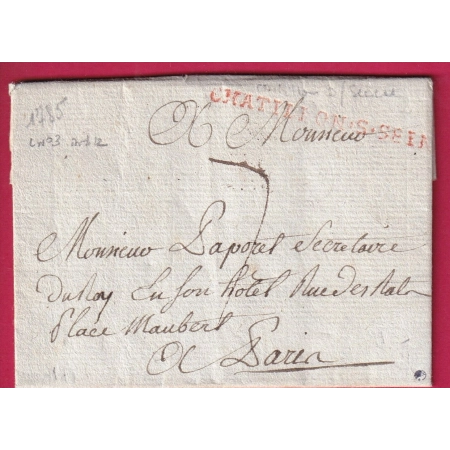 1785
CHATILLON-S-SEIN
A Monsieur
7
Monsieur Laporet Secretaire
Du Roy En son hôtel Rue des
Place Maubert
A Paris